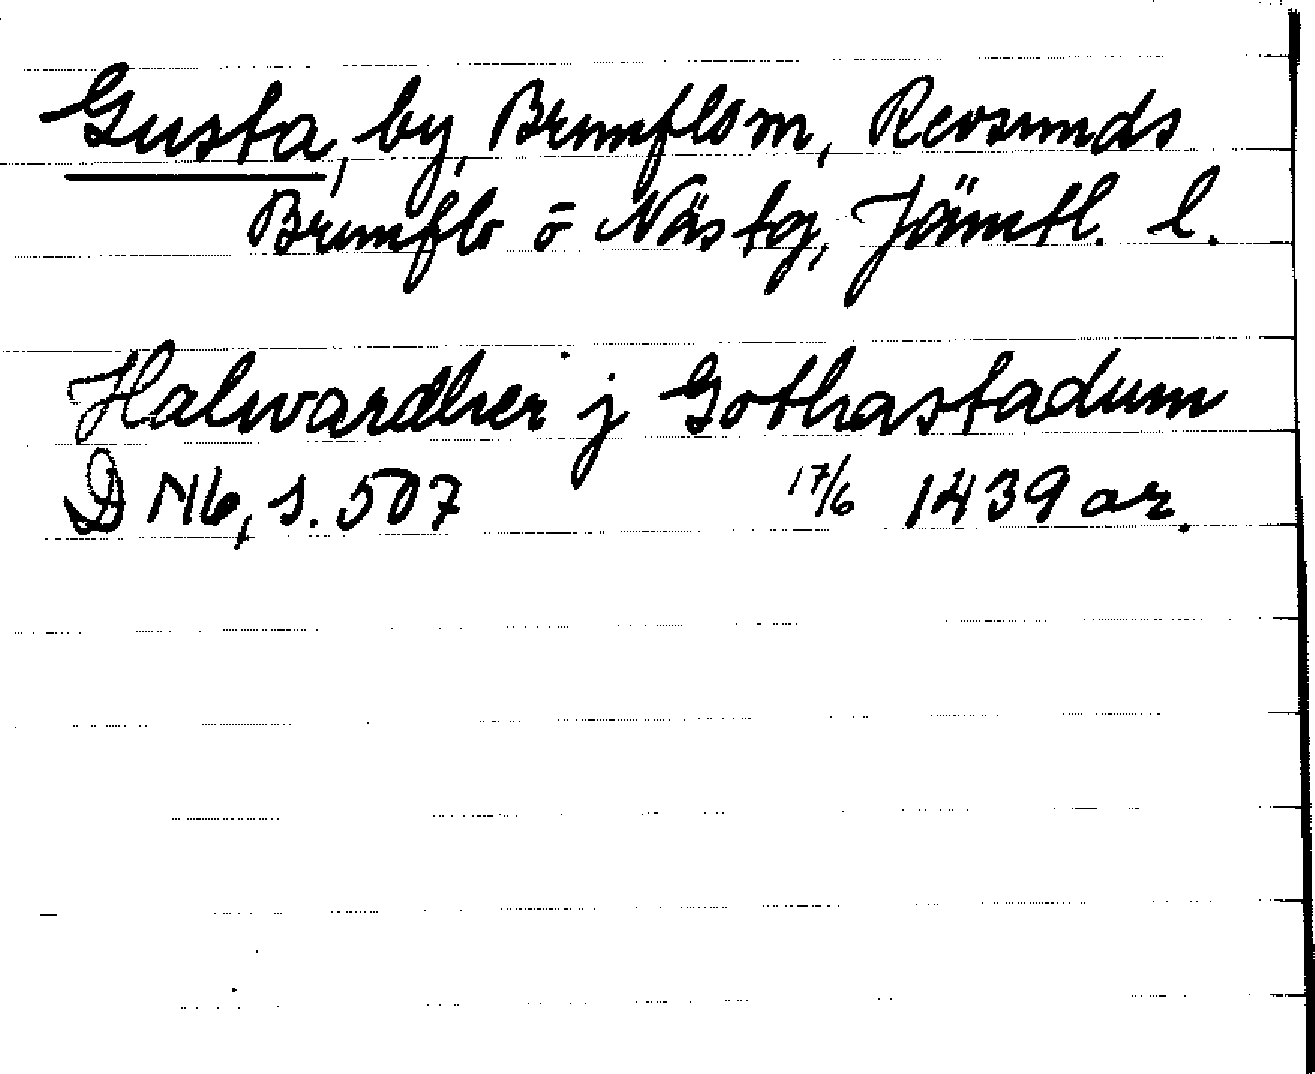 Gusta, by, Brunflo sn, Revsunds
Brunflo ō Näs tg, Jämtl. l.
Halwardher j Gothastadum
DN 16, s. 507 17/6 1439 or.